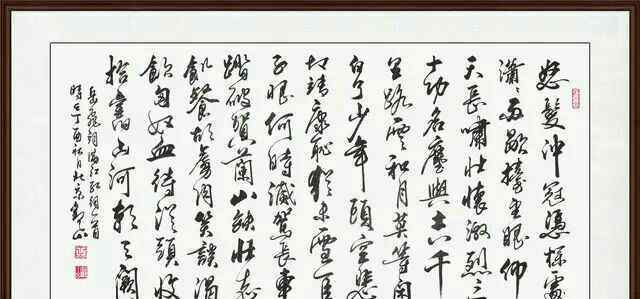 怒髮沖冠憑欄處
瀟瀟雨歇擡望眼仰
天長嘯壯懷激烈三
十功名塵與土八千
里路雲和月莫等閒
白了少年頭空悲
切靖康恥猶未雪臣
子恨何時滅駕長車
踏破賀蘭山缺壯志
飢餐胡虜肉笑談渴
飲匈奴血待從頭收
拾舊山河朝天闕
岳飛詞滿江紅一首
時在丁酉秋月北京